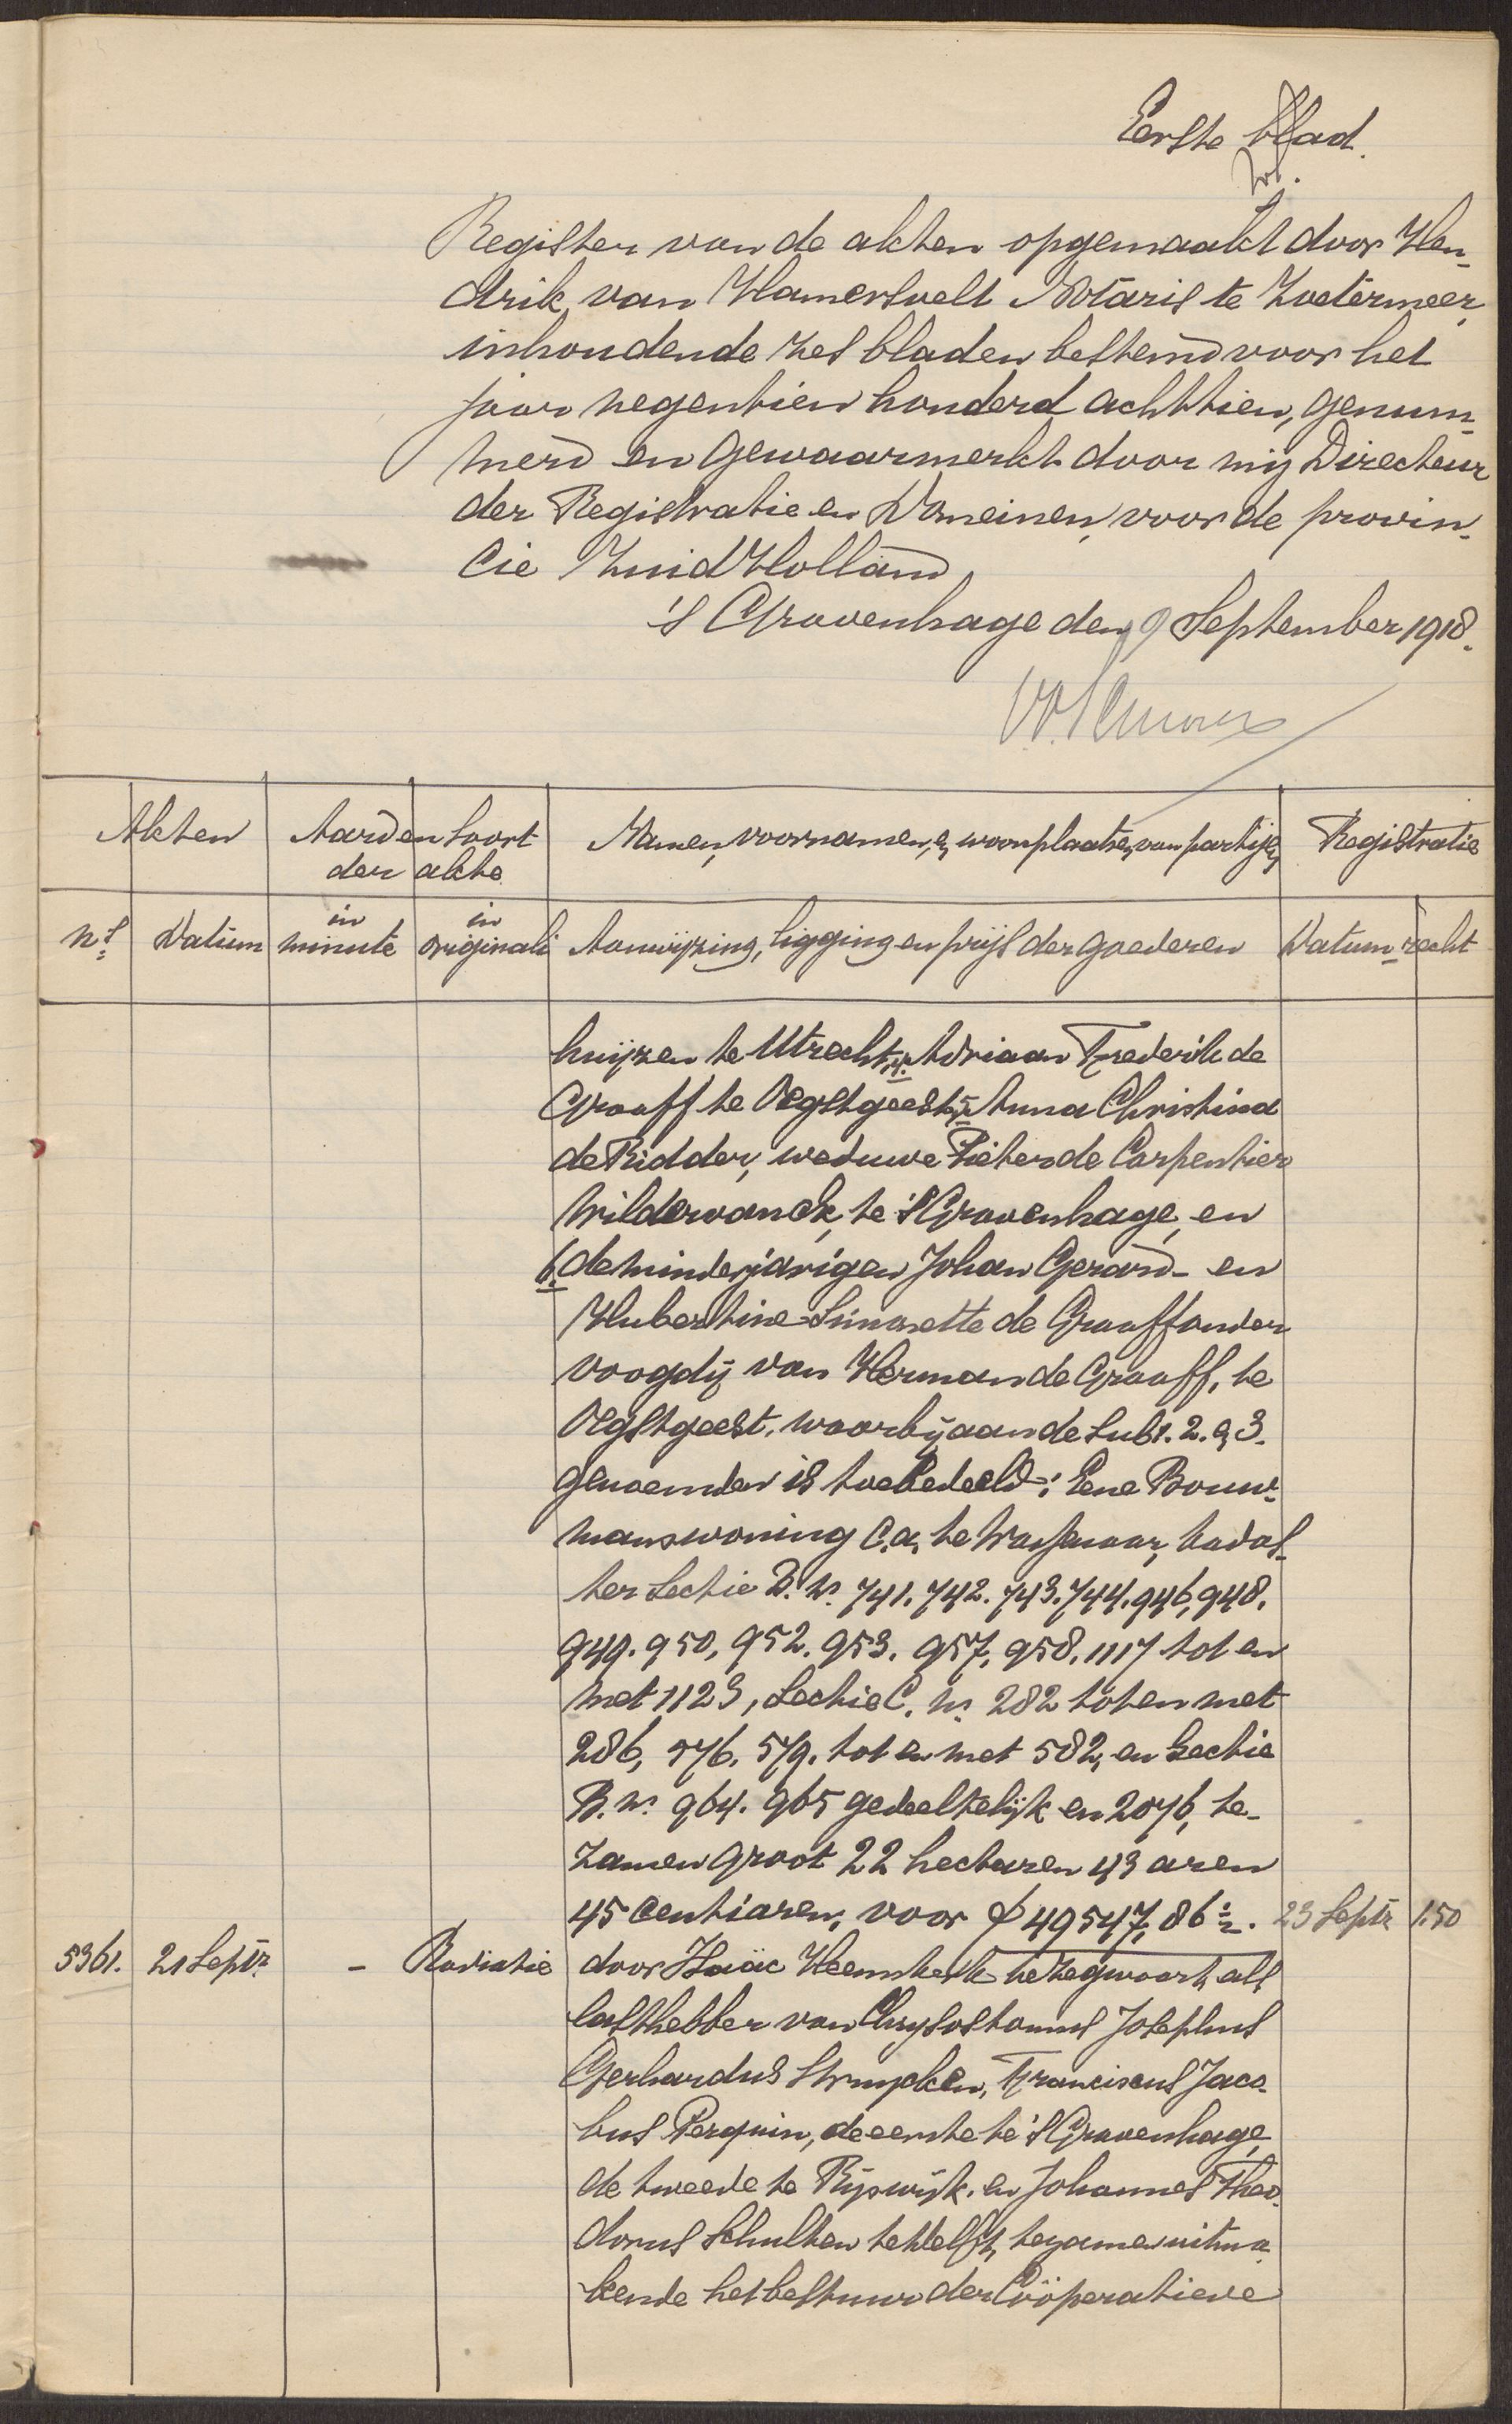 Eerste blad.
Register van de akten opgemaakt door Hen-
drik van Hamersvelt Notaris te Zoetermeer,
inhoudende zes bladen bestemd voor het
jaar negentien honderd achttien, genum-
merd en gewaarmerkt door mij Directeur
der Registratie en Domeinen, voor de provin-
cie Zuid Holland
's Gravenhage den 9 September 1918.
Akten Aard en Soort der akte Namen, voornamen, en woonplaatsen, van partijen Registratie
Ns Datum in minute in originali Aanwijzing, ligging en prijs der goederen Datum - recht
huijzen te Utrecht, 4. Adriaan Frederik de
Graaff te Oegstgeest, 5. Anna Christina
de Ridder, weduwe Pieter de Carpentier
Wildervanck, te 's Gravenhage, en
6. de minderjarigen Johan Gerard - en
Hubertine Simonette de Graaff onder
voogdij van Herman de Graaff, te
Oegstgeest, waarbij aan de sub 1. 2. en 3.
genoemden is toebedeeld: Eene Bouw-
manswoning c.a. te Wassenaar, kadas-
ter Sectie D. Ns. 741. 742. 743. 744. 946, 948.
949. 950, 952. 953. 957, 958. 1117 tot en
met 1123, Sectie C. Ns. 282 tot en met
286, 576. 579. tot en met 582, en Sectie
B. Ns. 964. 965 gedeeltelijk en 2076, te-
zamen groot 22 hectaren 43 aren
45 centiaren, voor f 49547,86½. 23 Septr 1.50
5361. 21 Septr. - Radiatie door Isaäc Heemskerk te Zegwaart, als
lasthebber van Chrysostomus Josephus
Gerhardus Struycken, Franciscus Jaco-
bus Perquin, de eerste te 's Gravenhage,
de tweede te Rijswijk, en Johannes Theo-
dorus Schulten te Delft, tezamen uitma-
kende het bestuur der Coöperatieve